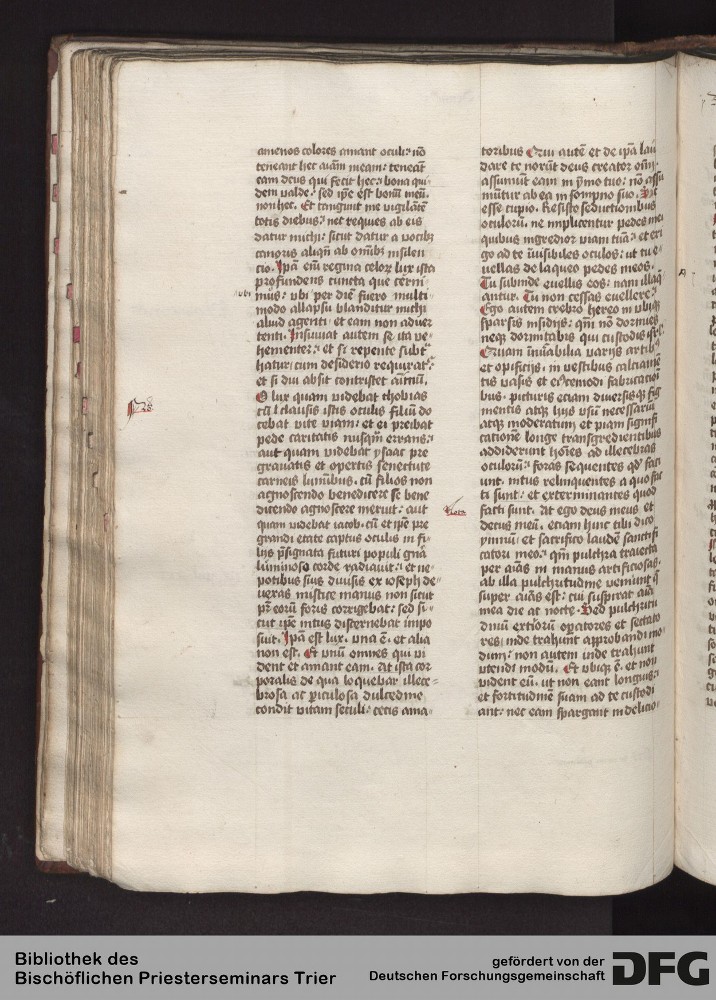 amenos colores amant oculi: nō
teneant hec aīam meam: teneāt
eam deus qui fecit hec: bona qui
dem valde: sed ip̄e est bonū meū.
non hec. Et tangunt me vigilātē
totis diebus: nec requies ab eis
datur michi: sicut datur a vocibꝫ
canoris aliqn̄ ab om̄ibꝫ in silen
cio. Ip̄a em̄ regina coloꝝ lux ista
profundens cuncta que cerni
mus: vbi per diē fuero multi
vbi
modo allapsu blanditur michi
aliud agenti et eam non aduer
tenti. Insinuat autem se ita ve
hementer: et si repente subt
hatur: cum desiderio requirat
et si diu absit contristet
O lux quam videbat thobias
cū clausis istis oculis filiū do
cebat vite viam: et ei preibat
pede caritatis nusqm̄ errans:
aut quam videbat ysaac pre
grauatis et opertis senectute
carneis luminibus. cū filios non
agnoscendo benedicere se bene
dicendo agnoscere meruit: aut
quam videbat iacob. cū et ip̄e pre
grandi etate captus oculis in fi
lijs p̄signata futuri populi
luminoso corde radiauit: et ne
potibus suis diuisis ex ioseph de
uexas mistice manus non sicut
pr̄ eorū foris corrigebat: sed si
cut ip̄e intus discernebat impo
suit. Ip̄a est lux. vna ē. et alia
non est. Et vnū omnes qui vi
dent et amant eam. At ista cor
poralis de qua loquebar illece
brosa ac periculosa dulcedine
condit vitam seculi: cecis ama
toribus Qui autē et de ip̄a lau
dare te norūt deus creator om̄
assumūt eam in ymo tuo: nō assu
mūtur ab ea in sompno suo. Sic
esse cupio. Resisto seductionibus
oculorū. ne implicentur pedes mei
quibus ingredior viam tuā: et eri
go ad te inuisibiles oculos: ut tu e
uellas de laqueo pedes meos.
Tu subinde euellis eos: nam illaq
antur. Tu non cessas euellere:
Ego autem crebro hereo in vbiqꝫ
sparsis insidijs: qm̄ nō dormies
neqꝫ dormitabis qui custodis isrl
Quam inūabilia varijs artibꝫ
et opificijs. in vestibus calciamē
tis vasis et fabricacioi
bus. picturis eciam diuersisqꝫ fig
mentis atqꝫ hijs vsū necessariū
atqꝫ moderatum et piam signifi
cationē longe transgredientibus
addiderunt hoīes ad illecebras
oculorū: foras sequentes qd' faci
unt. intus relinquentes a quo fac
ti sunt: et exterminantes quod
facti sunt. At ego deus meus et
Nota
decus meū. etiam hinc tibi dico
ymnū et sacrifico laudē sanctifi
catori meo: qm̄ pulchra traiecta
per aīas in manus artificiosas.
ab illa pulchritudine veniunt q
super aīas est: cui suspirat aīa
mea die ac nocte. Sed pulchritu
dinū exterioꝝ operatores et sectato
res: inde trahunt approbandi mo
dum: non autem inde trahunt
vtendi modū. Et vbiqꝫ ē. et non
vident eū. ut non eant longius:
et fortitudinē suam ad te custodi
ant: nec eam spargant in delicio
Bibliothek des
Bischöflichen Priesterseminars Trier
gefördert von der
Deutschen Forschungsgemeinschaft
DFG